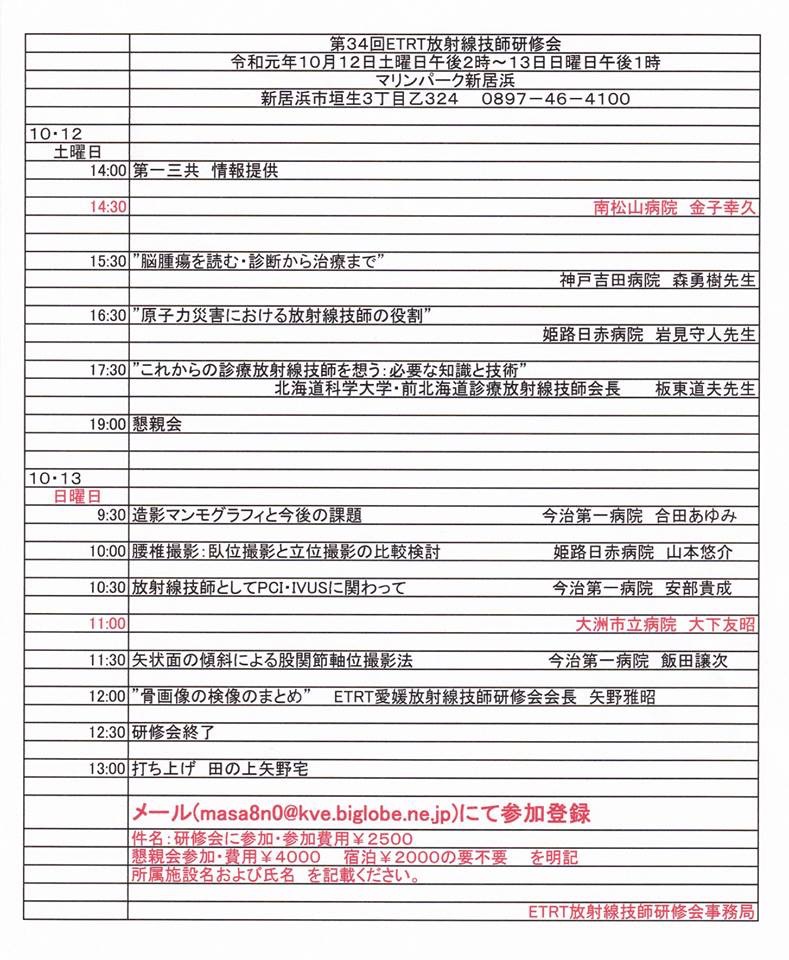 第34回ETRT放射線技師研修会
令和元年10月12日土曜日午後2時～13日日曜日午後1時
マリンパーク新居浜
新居浜市垣生3丁目乙324　0897－46－4100
10・12
土曜日
14:00 第一三共　情報提供
14:30 南松山病院　金子幸久
15:30 ”脳腫瘍を読む・診断から治療まで”
神戸吉田病院　森勇樹先生
16:30 ”原子力災害における放射線技師の役割”
姫路日赤病院　岩見守人先生
17:30 ”これからの診療放射線技師を想う：必要な知識と技術”
北海道科学大学・前北海道診療放射線技師会長　板東道夫先生
19:00 懇親会
10・13
日曜日
9:30 造影マンモグラフィと今後の課題　今治第一病院　合田あゆみ
10:00 腰椎撮影：臥位撮影と立位撮影の比較検討　姫路日赤病院　山本悠介
10:30 放射線技師としてPCI・IVUSに関わって　今治第一病院　安部貴成
11:00 大洲市立病院　大下友昭
11:30 矢状面の傾斜による股関節軸位撮影法　今治第一病院　飯田譲次
12:00 ”骨画像の検像のまとめ”　ETRT愛媛放射線技師研修会会長　矢野雅昭
12:30 研修会終了
13:00 打ち上げ　田の上矢野宅
メール(masa8n0@kve.biglobe.ne.jp)にて参加登録
件名：研修会に参加・参加費用￥2500
懇親会参加・費用￥4000　宿泊￥2000の要不要　を明記
所属施設名および氏名　を記載ください。
ETRT放射線技師研修会事務局